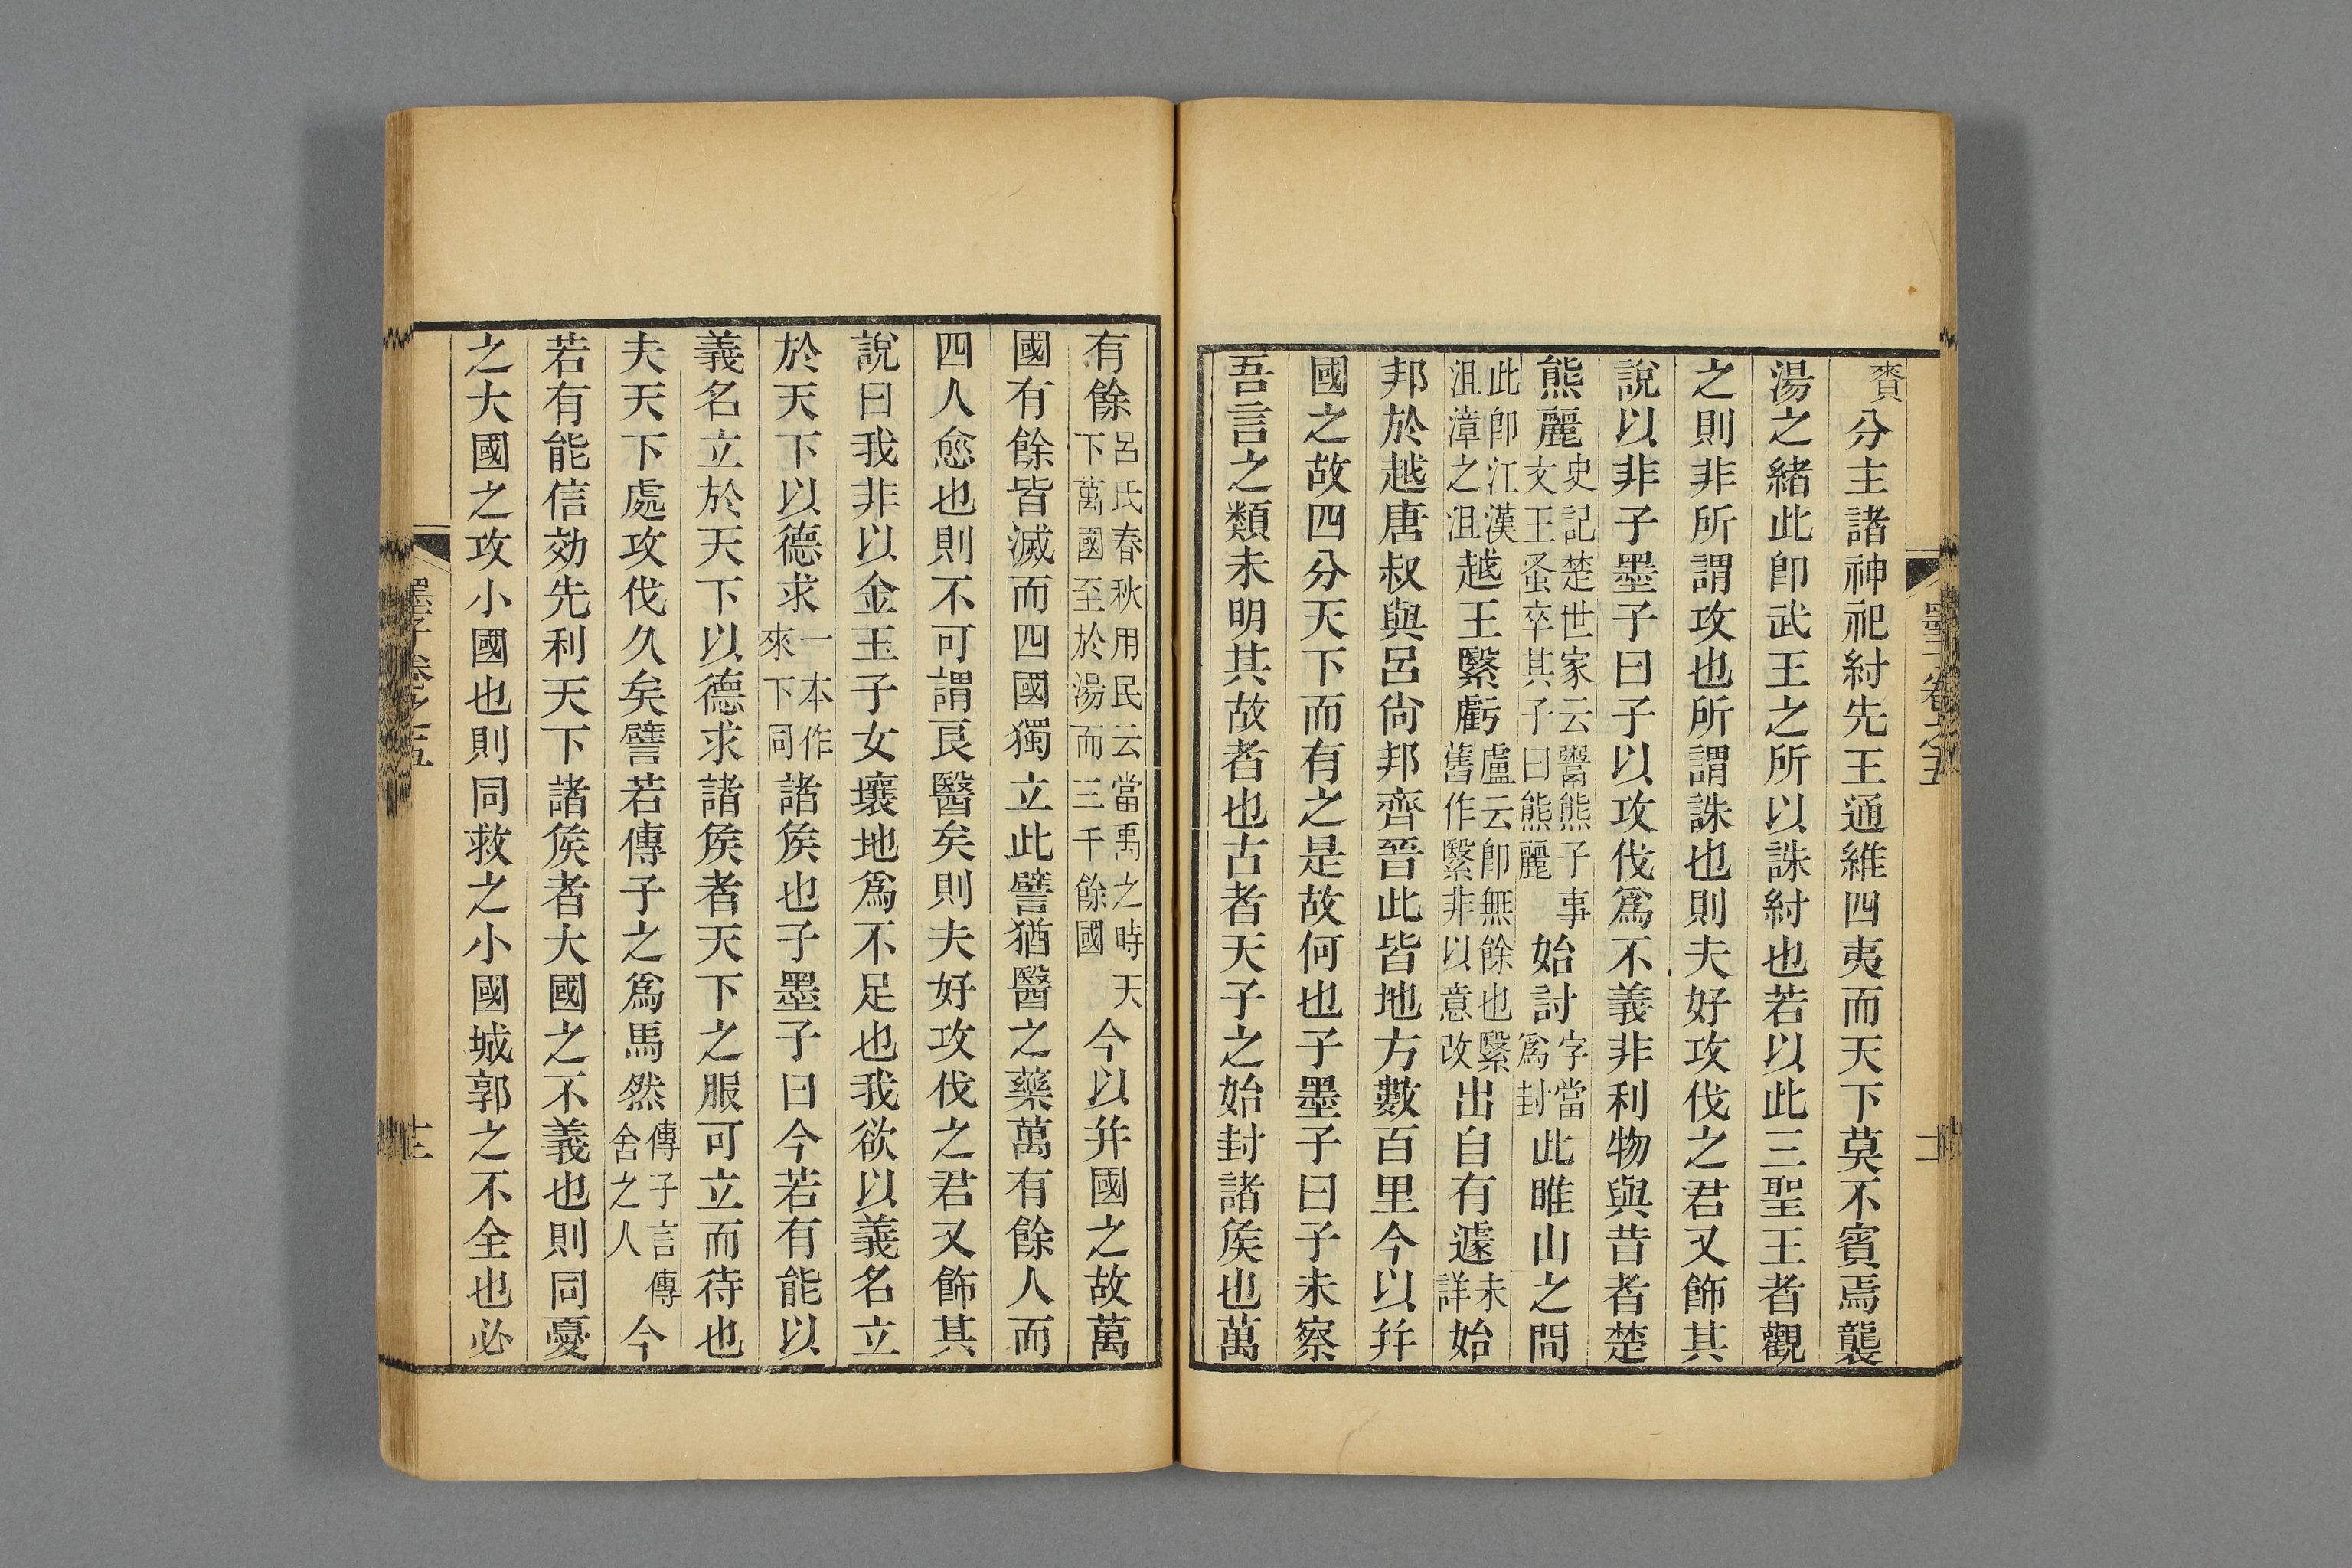 賚分主諸神祀紂先王通維四夷而天下莫不賓焉襲
湯之緒此卽武王之所以誅紂也若以此三聖王者觀
之則非所謂攻也所謂誅也則夫好攻伐之君又飾其
說以非子墨子曰子以攻伐爲不義非利物與昔者楚
熊麗史記楚世家云鬻熊子事文王蚤卒其子曰熊麗始討字當爲封此睢山之間
此卽江漢沮漳之沮越王繄虧盧云卽無餘也繄舊作緊非以意改出自有遽未詳始
邦於越唐叔與呂尙邦齊晉此皆地方數百里今以幷
國之故四分天下而有之是故何也子墨子曰子未察
吾言之類未明其故者也古者天子之始封諸矦也萬
有餘呂氏春秋用民云當禹之時天下萬國至於湯而三千餘國今以幷國之故萬
國有餘皆滅而四國獨立此譬猶醫之藥萬有餘人而
四人愈也則不可謂良醫矣則夫好攻伐之君又飾其
說曰我非以金玉子女壤地爲不足也我欲以義名立
於天下以德求一本作來下同諸矦也子墨子曰今若有能以
義名立於天下以德求諸矦者天下之服可立而待也
夫天下處攻伐久矣譬若傳子之爲馬然傳子言傳舍之人今
若有能信効先利天下諸矦者大國之不義也則同憂
之大國之攻小國也則同救之小國城郭之不全也必
墨子卷之五
十三